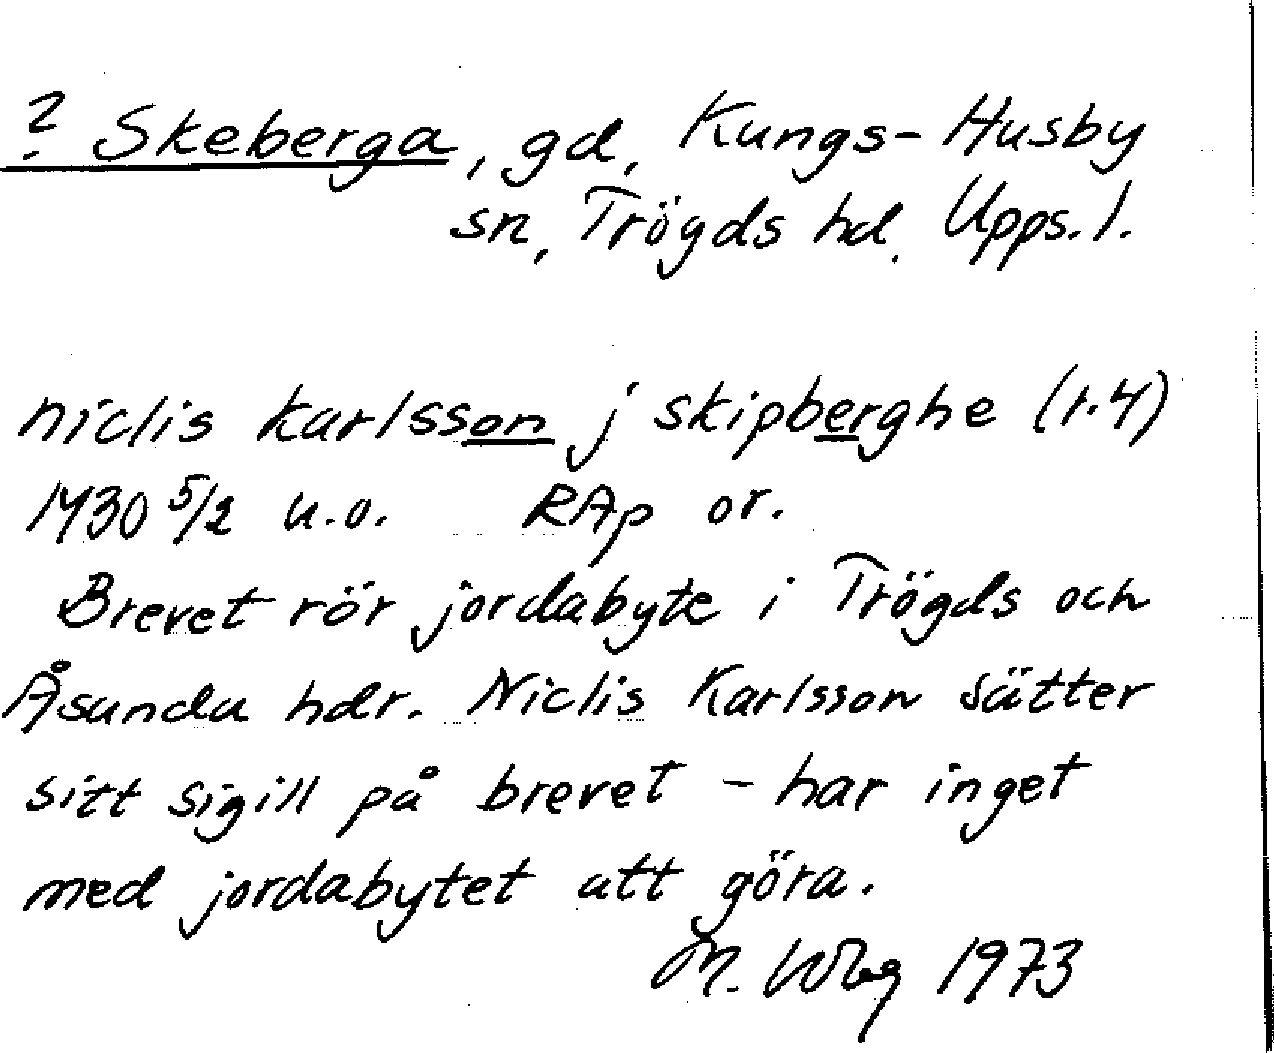 ? Skeberga, gd, Kungs-Husby
sn, Trögds hd. Upps. l.
niclis karlsson j skipberghe (r.4)
1430 5/2 u.o. RAp or.
Brevet rör jordabyte i Trögds och
Åsunda hdr. Niclis Karlsson sätter
sitt sigill på brevet – har inget
med jordabytet att göra.
M. Wbg 1973